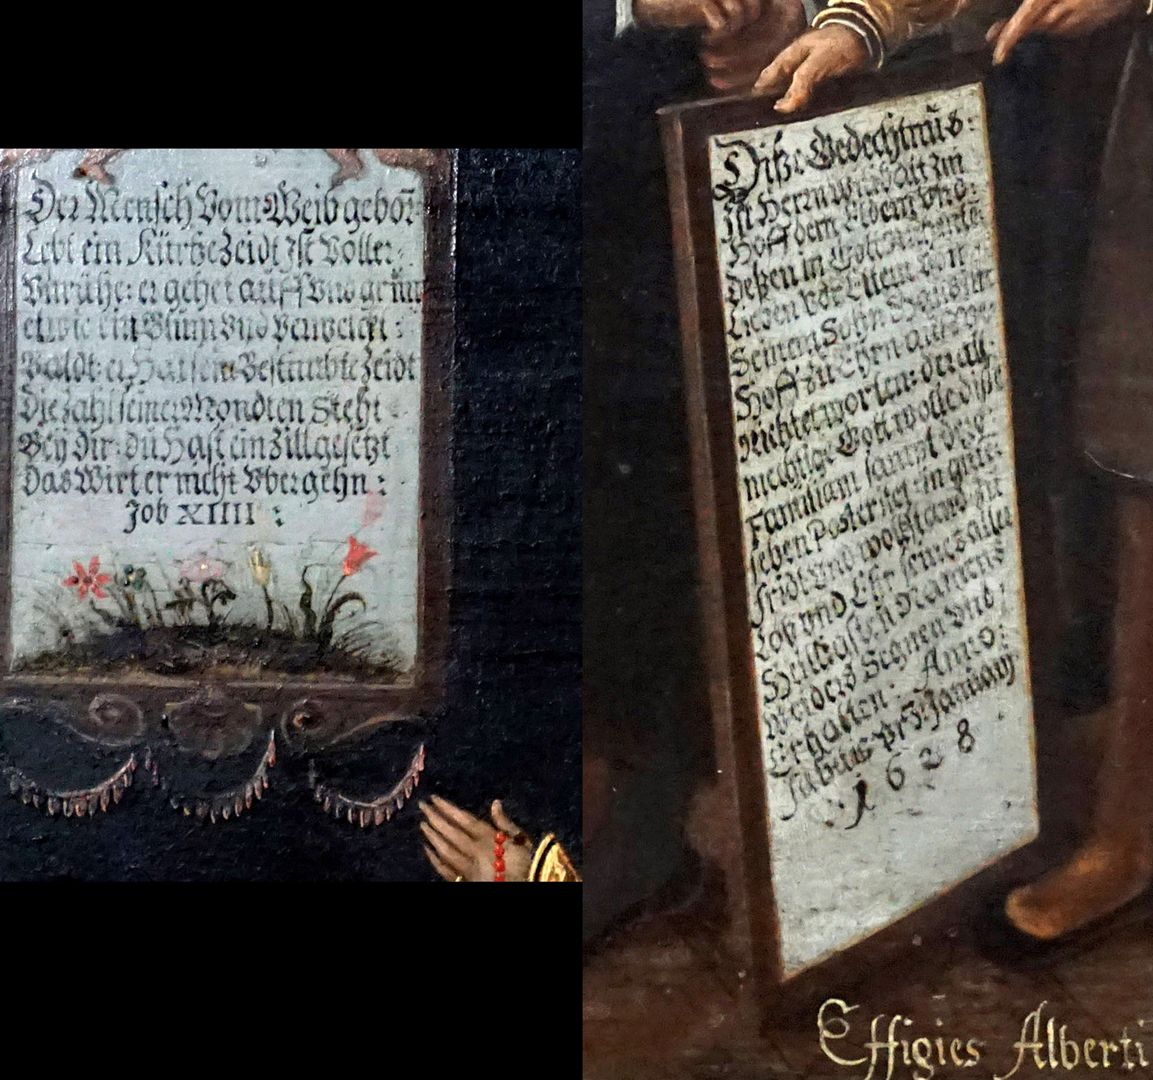 Der Mensch Vom Weib geborn
Lebt ein Kürtze Zeidt Ist Voller:
Vnrühe: er gehet aüff Vnd grünn
et wie ein Blüm Vnd Verwelckt:
Baldt: er Hat sein Bestimbte Zeidt
Die Zahl seiner Mondten Steht
Bey Dir: du Hast ein Zill gesetzt
Das Wirt er nicht Vbergehn:
Job XIIII:
Diße Gedechtnüs:
Ist Herrn Wilbolt Im
Hoff dem Eldern Vnd:
deßen in Gott
Lieben Vor Eltern von
Seinem Sohn
Hoff zu Ehren auffge
richtet worten: der all:
mechtige Gott wolle diße
Familiam sampt deße
leben Posteritet: in güte
fridt Vnd wolstand zu
Lob vnd Ehr seines aller
Heiligsten Namens
Weiders Segnen Vnd
Erhalten. Anno:
Januarij
1628
Effigies Alberti